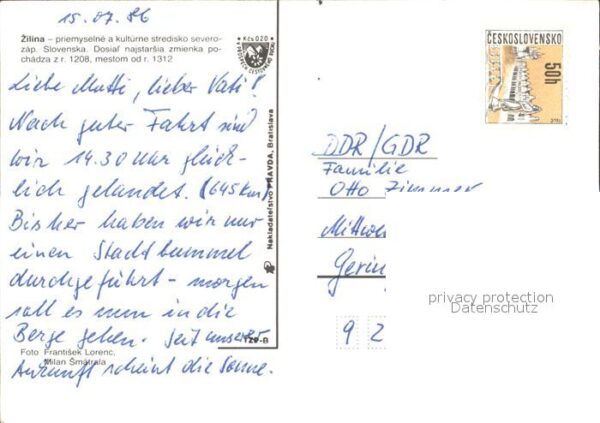 15.07.86
Žilina – priemyselné a kultúrne stredisko severo-
záp. Slovenska. Dosiaľ najstaršia zmienka po-
chádza z r. 1208, mestom od r. 1312
Kčs 0,20
Liebe Mutti, lieber Vati!
Nach guter Fahrt sind
wir 14.30 Uhr glück-
lich gelandet. (645km)
Bisher haben wir nur
einen Stadtbummel
durchgeführt - morgen
soll es nun in die
Berge gehen. Seit unserer
Ankunft scheint die Sonne.
Foto František Lorenc,
Milan Šmatrala
Nakladateľstvo PRAVDA, Bratislava
TZP-B
ČESKOSLOVENSKO
50h
DDR/GDR
Familie
Otto Zimmer
Mittwei
Gerin
9 2
privacy protection
Datenschutz